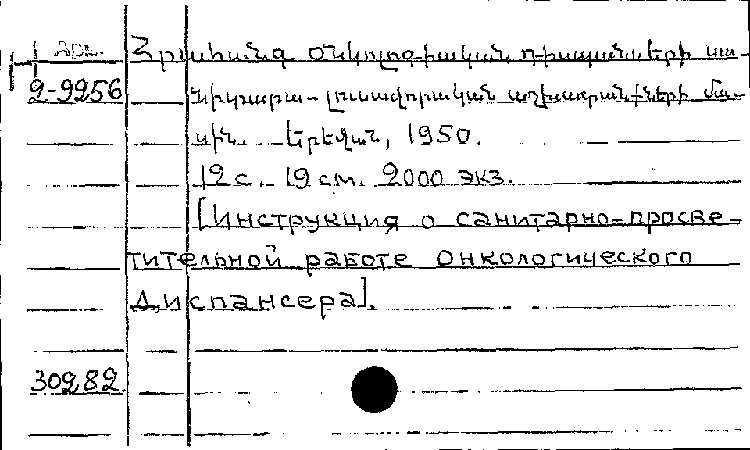 Арм.
2-9256
Հրահանգ օնկոլոգիական դիսպանսերի սա-
նիտարա-լուսավորական աշխատանքների մա-
սին. Երևան, 1950.
12 с. 19 см. 2000 экз.
[Инструкция о санитарно-просве-
тительной работе онкологического
диспансера].
30282